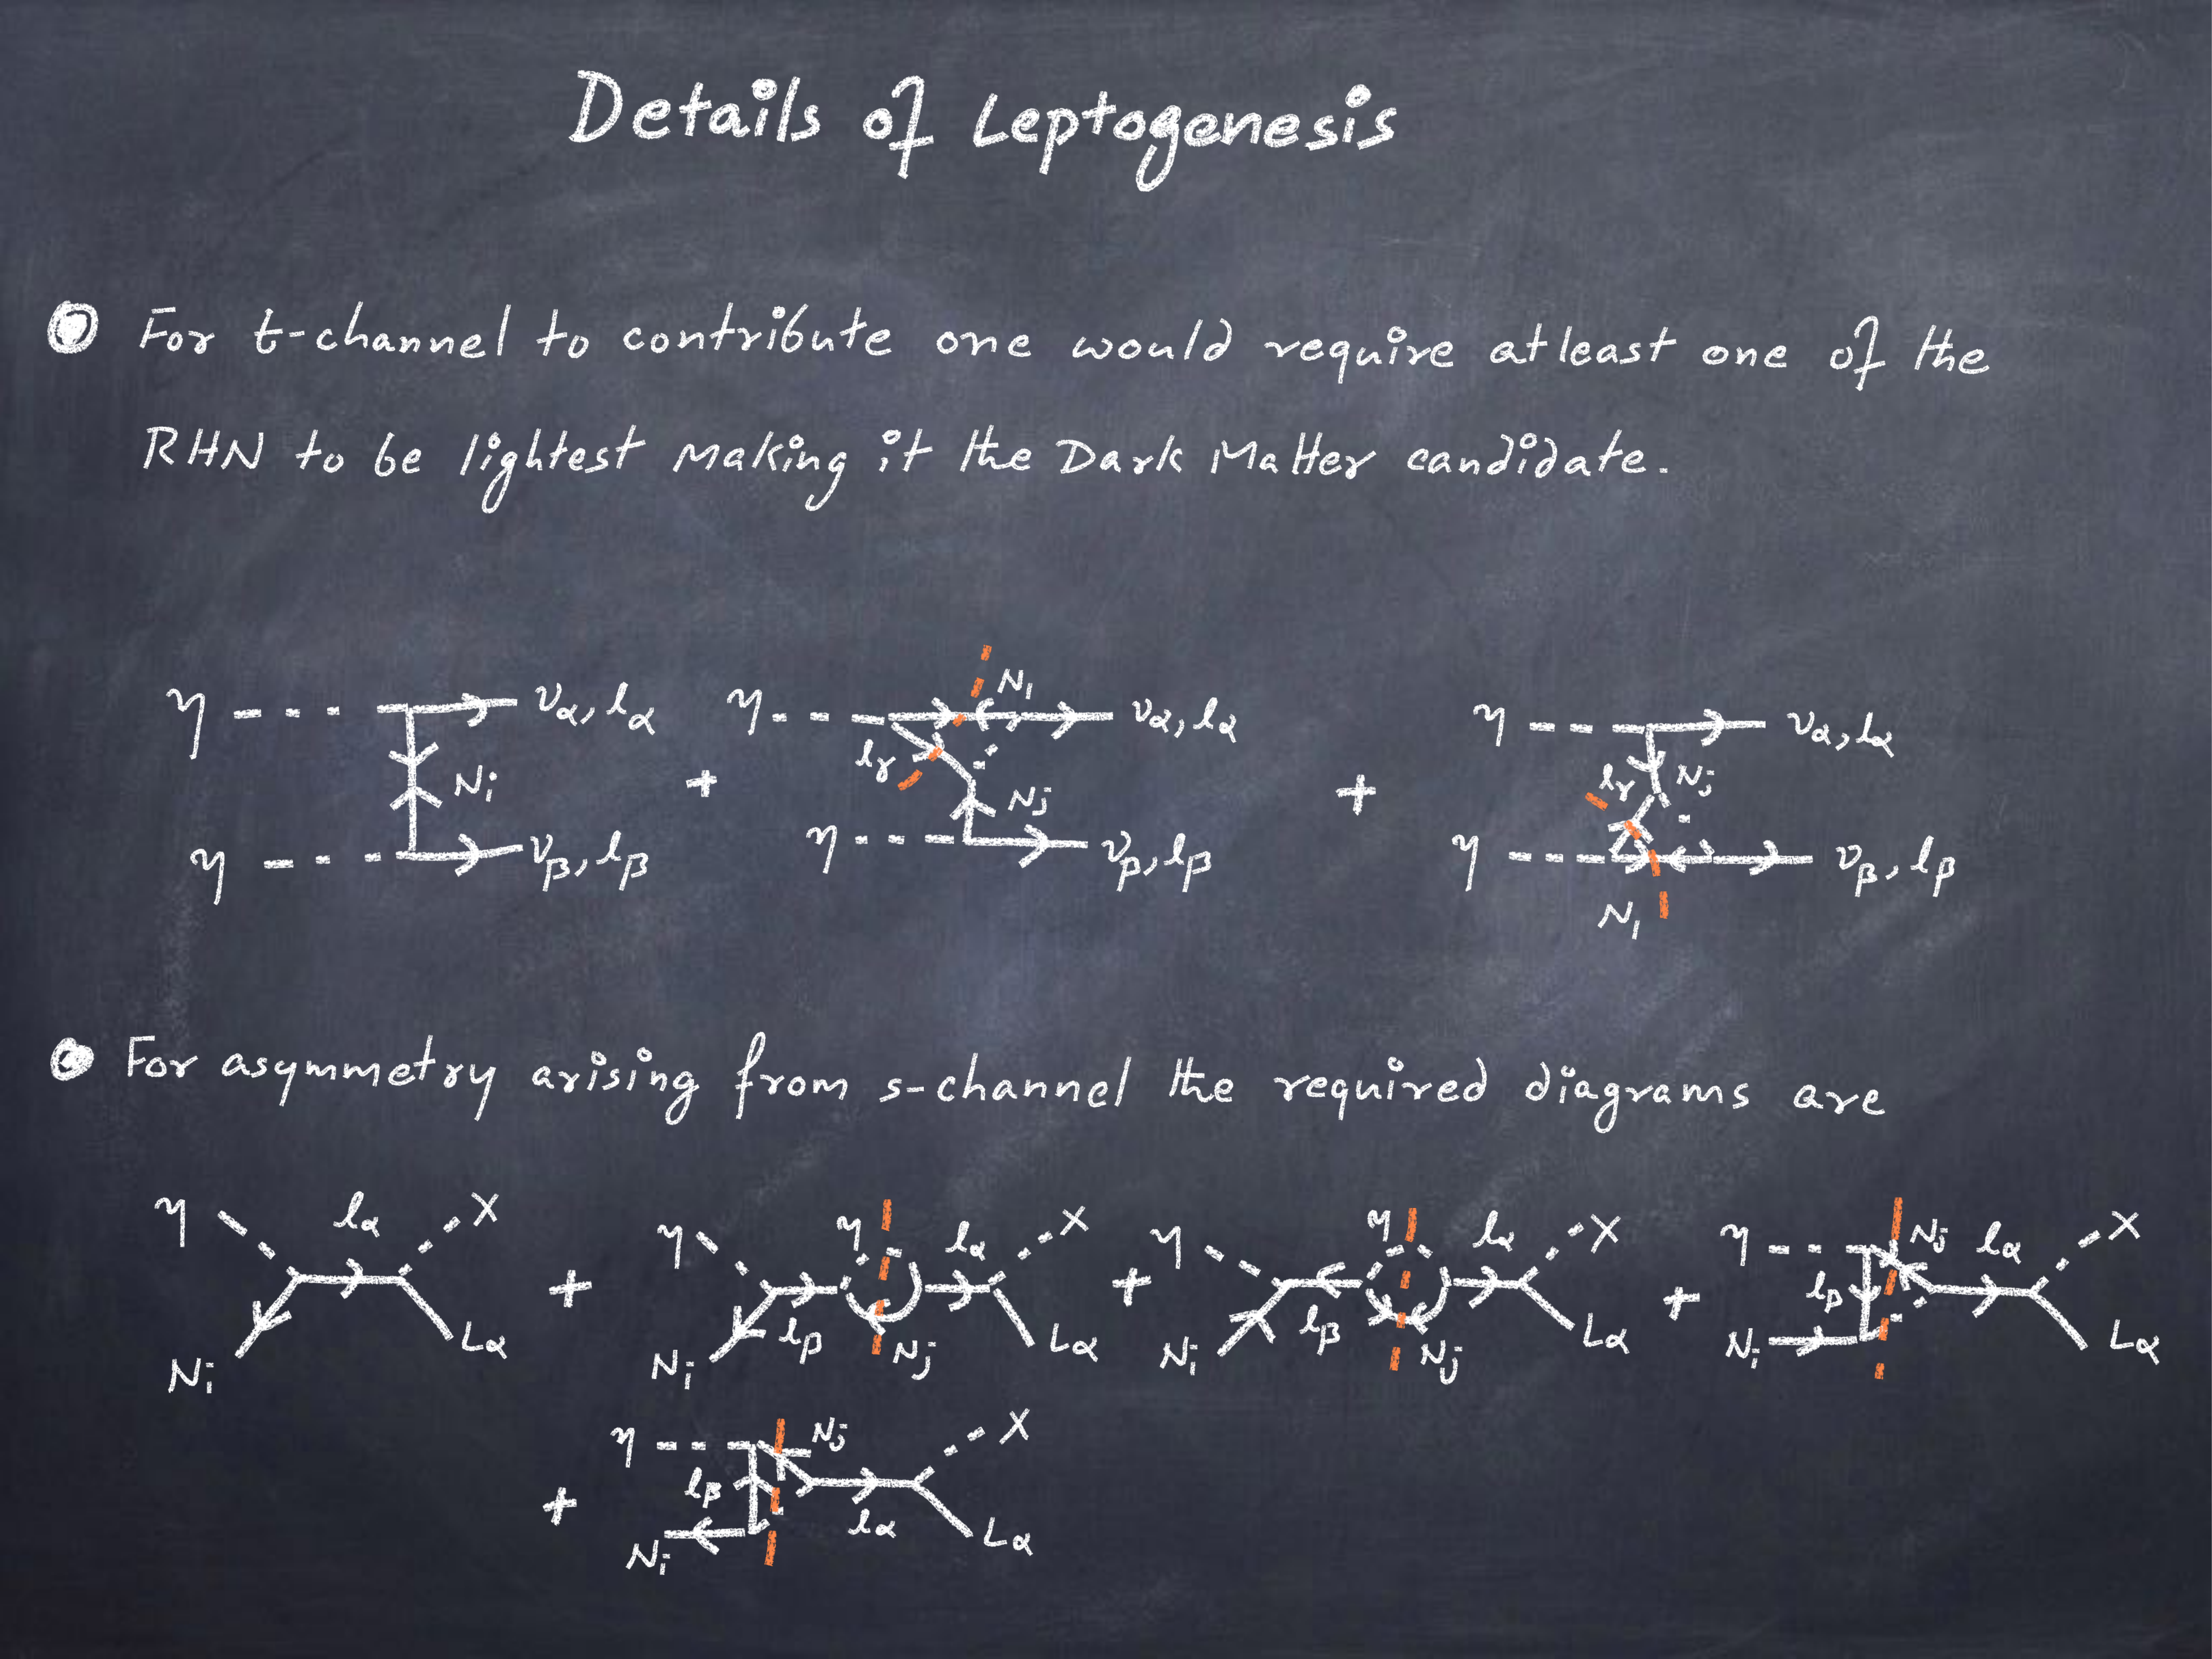 Details of Leptogenesis
For t-channel to contribute one would require atleast one of the
RHN to be lightest making it the Dark Matter candidate.
η να, lα η N1 να, lα η να, lα
Ni + lγ Nj + lγ Nj
η νβ, lβ η νβ, lβ η νβ, lβ
N1
For asymmetry arising from s-channel the required diagrams are
η lα X η η lα X η η lα X η Nj lα X
+ + + lβ
Ni Lα Ni lβ Nj Lα Ni lβ Nj Lα Ni Lα
η Nj X
+ lβ lα
Ni Lα